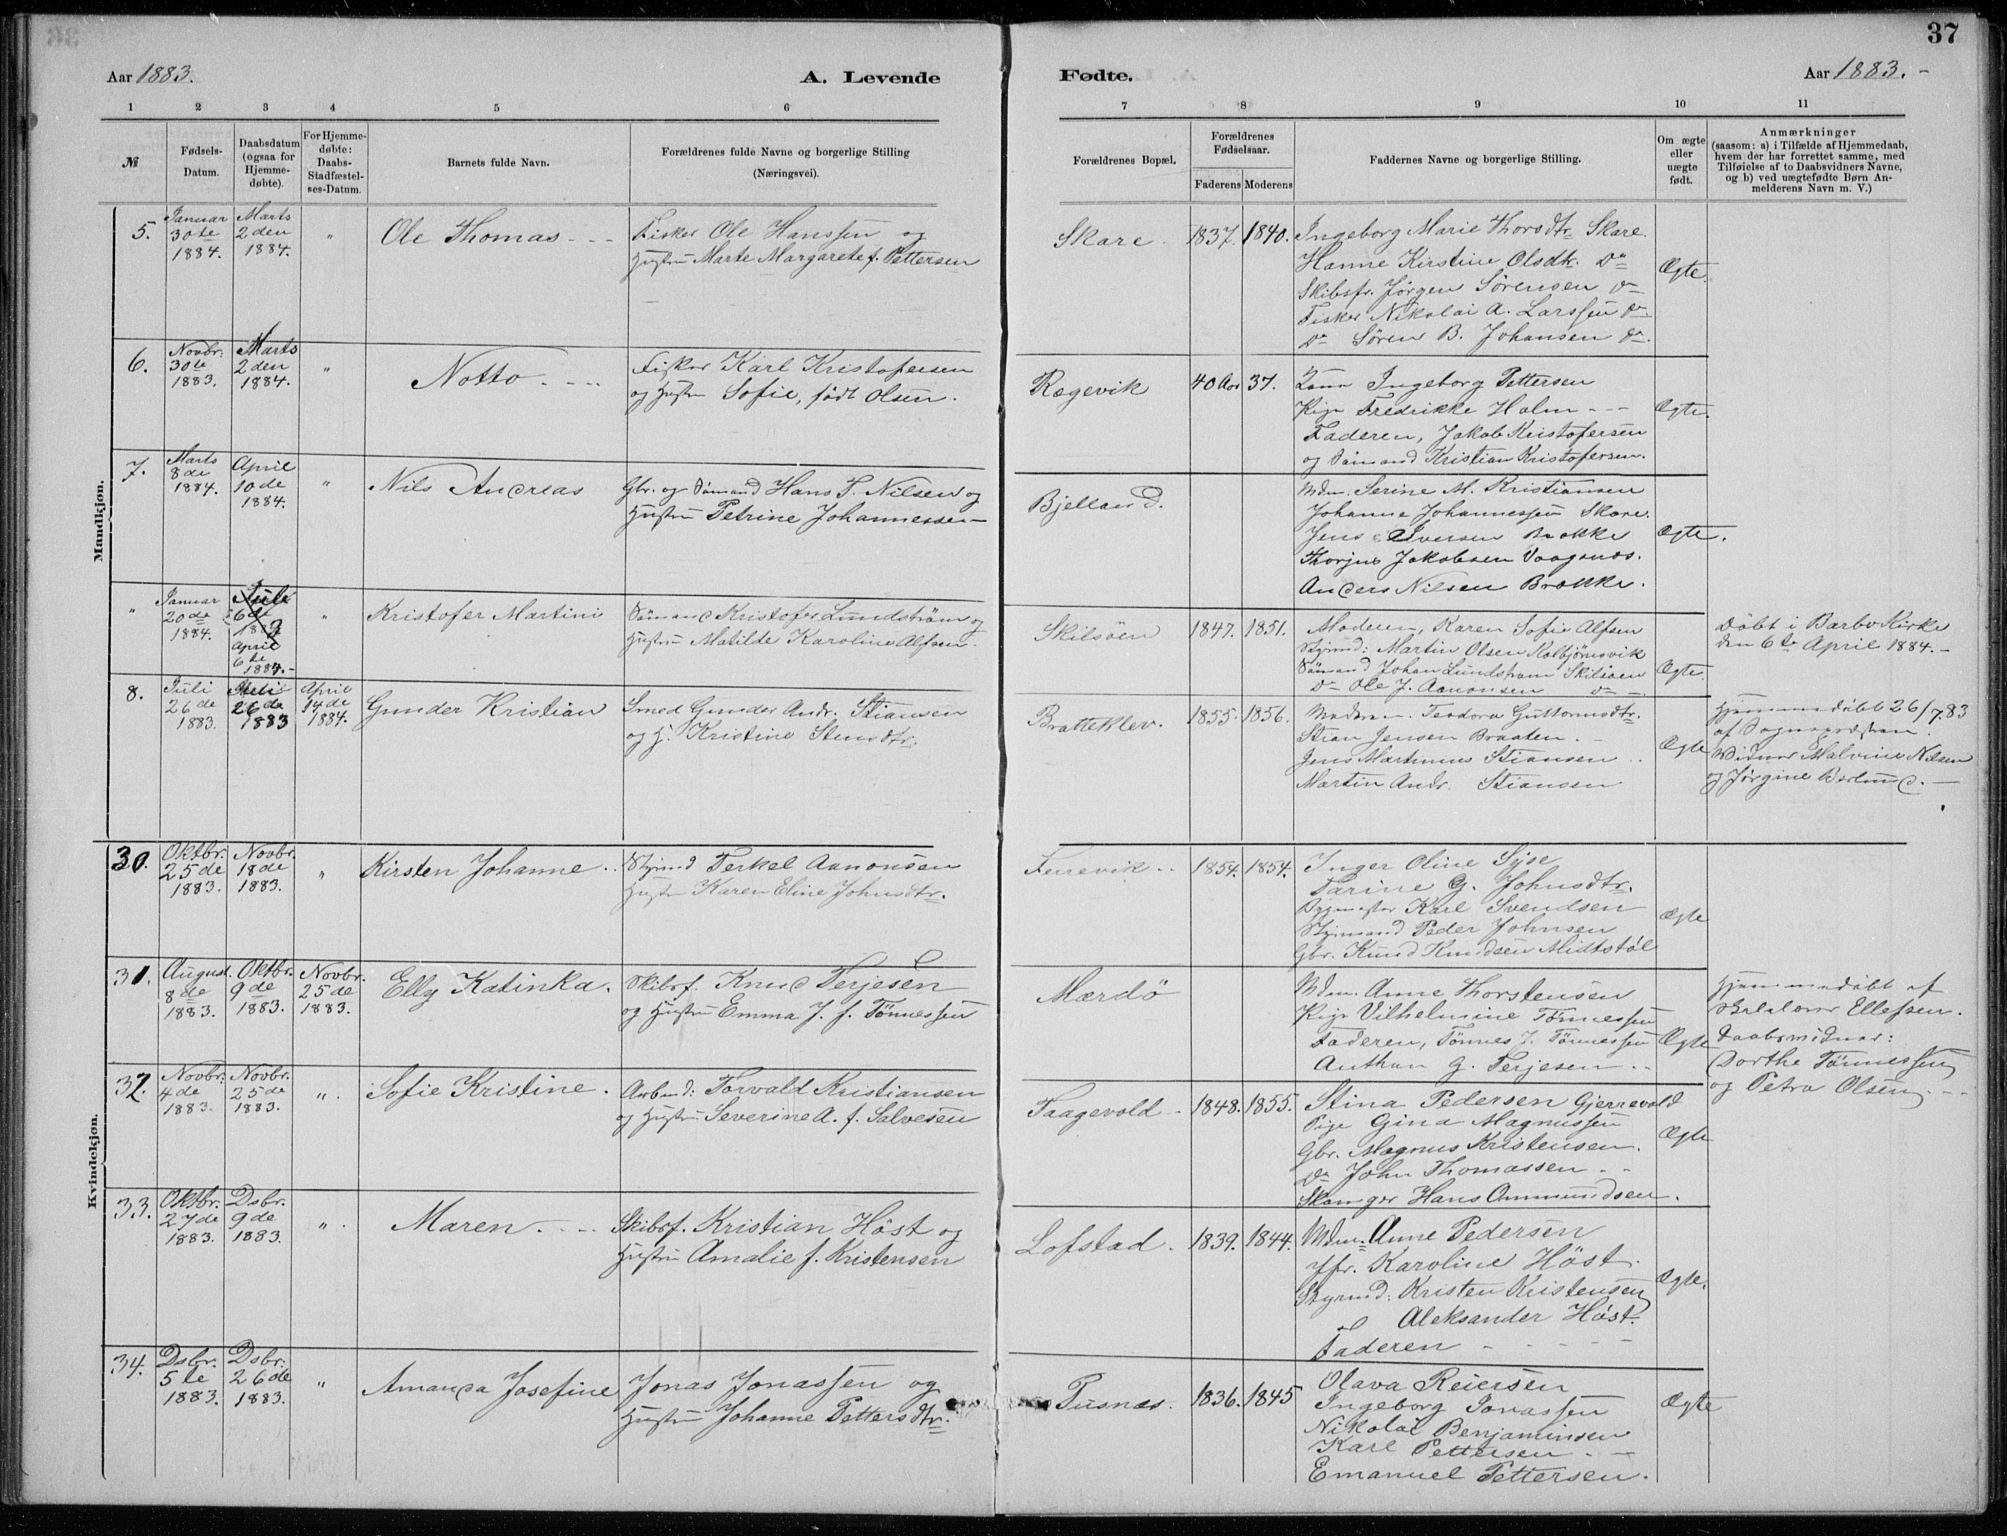 37
Aar 1883.
A. Levende
Fødte.
Aar 1883. -
1 2 3 4 5 6 7 8 9 10 11
№
Fødsels-
Datum.
Daabsdatum
(ogsaa for
Hjemme-
døbte).
For Hjemme-
døbte:
Daabs-
Stadfæstel-
ses-Datum.
Barnets fulde Navn.
Forældrenes fulde Navne og borgerlige Stilling
(Næringsvei).
Forældrenes Bopæl.
Forældrenes
Fødselsaar.
Faderens
Moderens
Faddernes Navne og borgerlige Stilling.
Om ægte
eller
uægte
født.
Anmærkninger
(saasom: a) i Tilfælde af Hjemmedaab,
hvem der har forrettet samme, med
Tilføielse af to Daabsvidners Navne,
og b) ved uægtefødte Børn An-
melderens Navn m. V.)
Mandkjøn.
5.
Januar
30te
1884.
Marts
2den
1884.
"
Ole Thomas
Fisker Ole Hanssen og
Hustru Marte Margarete f. Pettersen
Skare.
1837.
1840.
Ingeborg Marie Thorsdtr. Skare.
Hanne Kirstine Olsdtr. Do
Skibsfr. Jørgen Sørensen Do
Fisker Nikolai A. Larssen Do
Do Søren B. Johansen Do
Ægte.
6.
Novbr.
30te
1883.
Marts
2den
1884.
"
Notto
Fisker Karl Kristofersen
og Hustru Sofie, født Olsen.
Rægevik
40 Aar
37.
Kone Ingeborg Pettersen
Pige Fredrikke Holm
Faderen, Jakob Kristofersen
og Sømand Kristian Kristofersen.
Ægte.
7.
Marts
8de
1884.
April
10de
1884.
"
Nils Andreas
Gbr. og Sømand Hans T. Nilsen og
Hustru Petrine Johannessen
Bjelland.
Mdm. Serine M. Kristiansen
Johanne Johannessen Skare.
Jens Iversen Brække
Thorjus Jakobsen Vaagsnes.
Anders Nilsen Brække.
Ægte.
"
Januar
20de
1884.
Juli
6te
1883
April
6te
1884.
"
Kristofer Martini
Sømand Kristofer Lundstrøm og
Hustru Matilde Karoline Alfsen
Skilsøen
1847.
1851.
Moderen, Karen Sofie Alfsen
Styrmd: Martin Olsen Kolbjørnsvik
Sømand Johan Lundstrøm Skilsøen
Do Ole J. Aanonsen Do
Ægte.
Døbt i Barbo Kirke
den 6te April 1884.
8.
Juli
26de
1883.
Juli
26de
1883
April
14de
1884.
Gunder Kristian
Smed Gunder Andr. Stiansen
og H. Kristine Stensdtr.
Bratteklev.
1855.
1856.
Moderen. Teodora Guttormsdtr.
Stian Jensen Braaten.
Jens Martinius Stiansen
Martin Andr. Stiansen
Ægte
Hjemmedøbt 26/7.83
af Sognepræsten.
Vidner Malvine Nilsen
og Jørgine Berlund.
Kvindekjøn.
30.
Oktbr.
25de
1883.
Novbr.
18de
1883.
"
Kirsten Johanne
Styrmd Terkel Aanonsen
Hustru Karen Eline Johnsdtr.
Færevik
1854.
1854.
Inger Oline Syse
Tarine G. Johnsdtr.
Karl Svendsen
Styrmand Peder Johnsen
Gbr. Knud Knudsen Midtstøl
Ægte
31.
August.
8de
1883.
Oktbr.
9de
1883.
Novbr.
25de
1883.
Elly Katinka.
Skibsf. Knud Terjesen
og Hustru Emma J. f. Tønnessen
Mærdø
Mdm. Anne Thorstensen
Pige Vilhelmine Tønnessen
Faderen, Tønnes J. Tønnessen
Anthon G. Terjesen
Ægte
Hjemmedøbt af
Ellefsen.
Daabsvidner:
Dorthe Tønnessen
og Petra Olsen
32.
Novbr.
4de
1883.
Novbr.
25de
1883.
"
Sofie Kristine.
Arbmd: Torvald Kristiansen
og Hustru Severine A. f. Salvesen
Taagevold
1848.
1855.
Stina Pedersen Gjerrevold
Pige Gina Magnussen
Gbr. Magnus Kristensen.
Do John Thomassen
Hans Ommundsen.
Ægte
33.
Oktbr.
27de
1883.
Dsbr.
9de
1883.
"
Maren.
Skibsf. Kristian Høst og
Hustru Amalie f. Kristensen
Lofstad.
1839.
1844.
Mdm. Anne Pedersen
Jfr. Karoline Høst.
Styrmd: Kristen Kristensen
Aleksander Høst.
Faderen
Ægte.
34.
Dsbr.
5te
1883.
Dsbr.
26de
1883.
"
Amanda Josefine
Jonas Jonassen og
Hustru Johanne Pettersdtr.
Pusnes.
1836.
1845
Olava Reiersen
Ingeborg Jonassen
Nikolai Benjaminsen
Karl Pettersen
Emanuel Pettersen.
Ægte